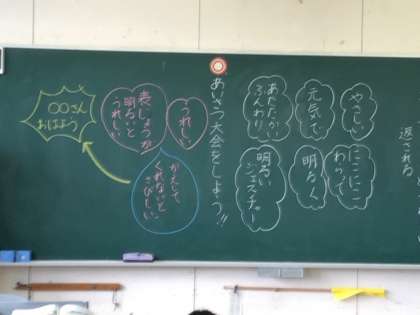 返される。
やさしい
にこにこ
わらって
元気で
明るく
あたたかい
ふんわり
明るい
ジェスチャー
あいさつ大会をしよう!!
うれしい
かえして
くれないと
さびしい
表じょうが
明るいと
うれしい
○○さん
おはよう